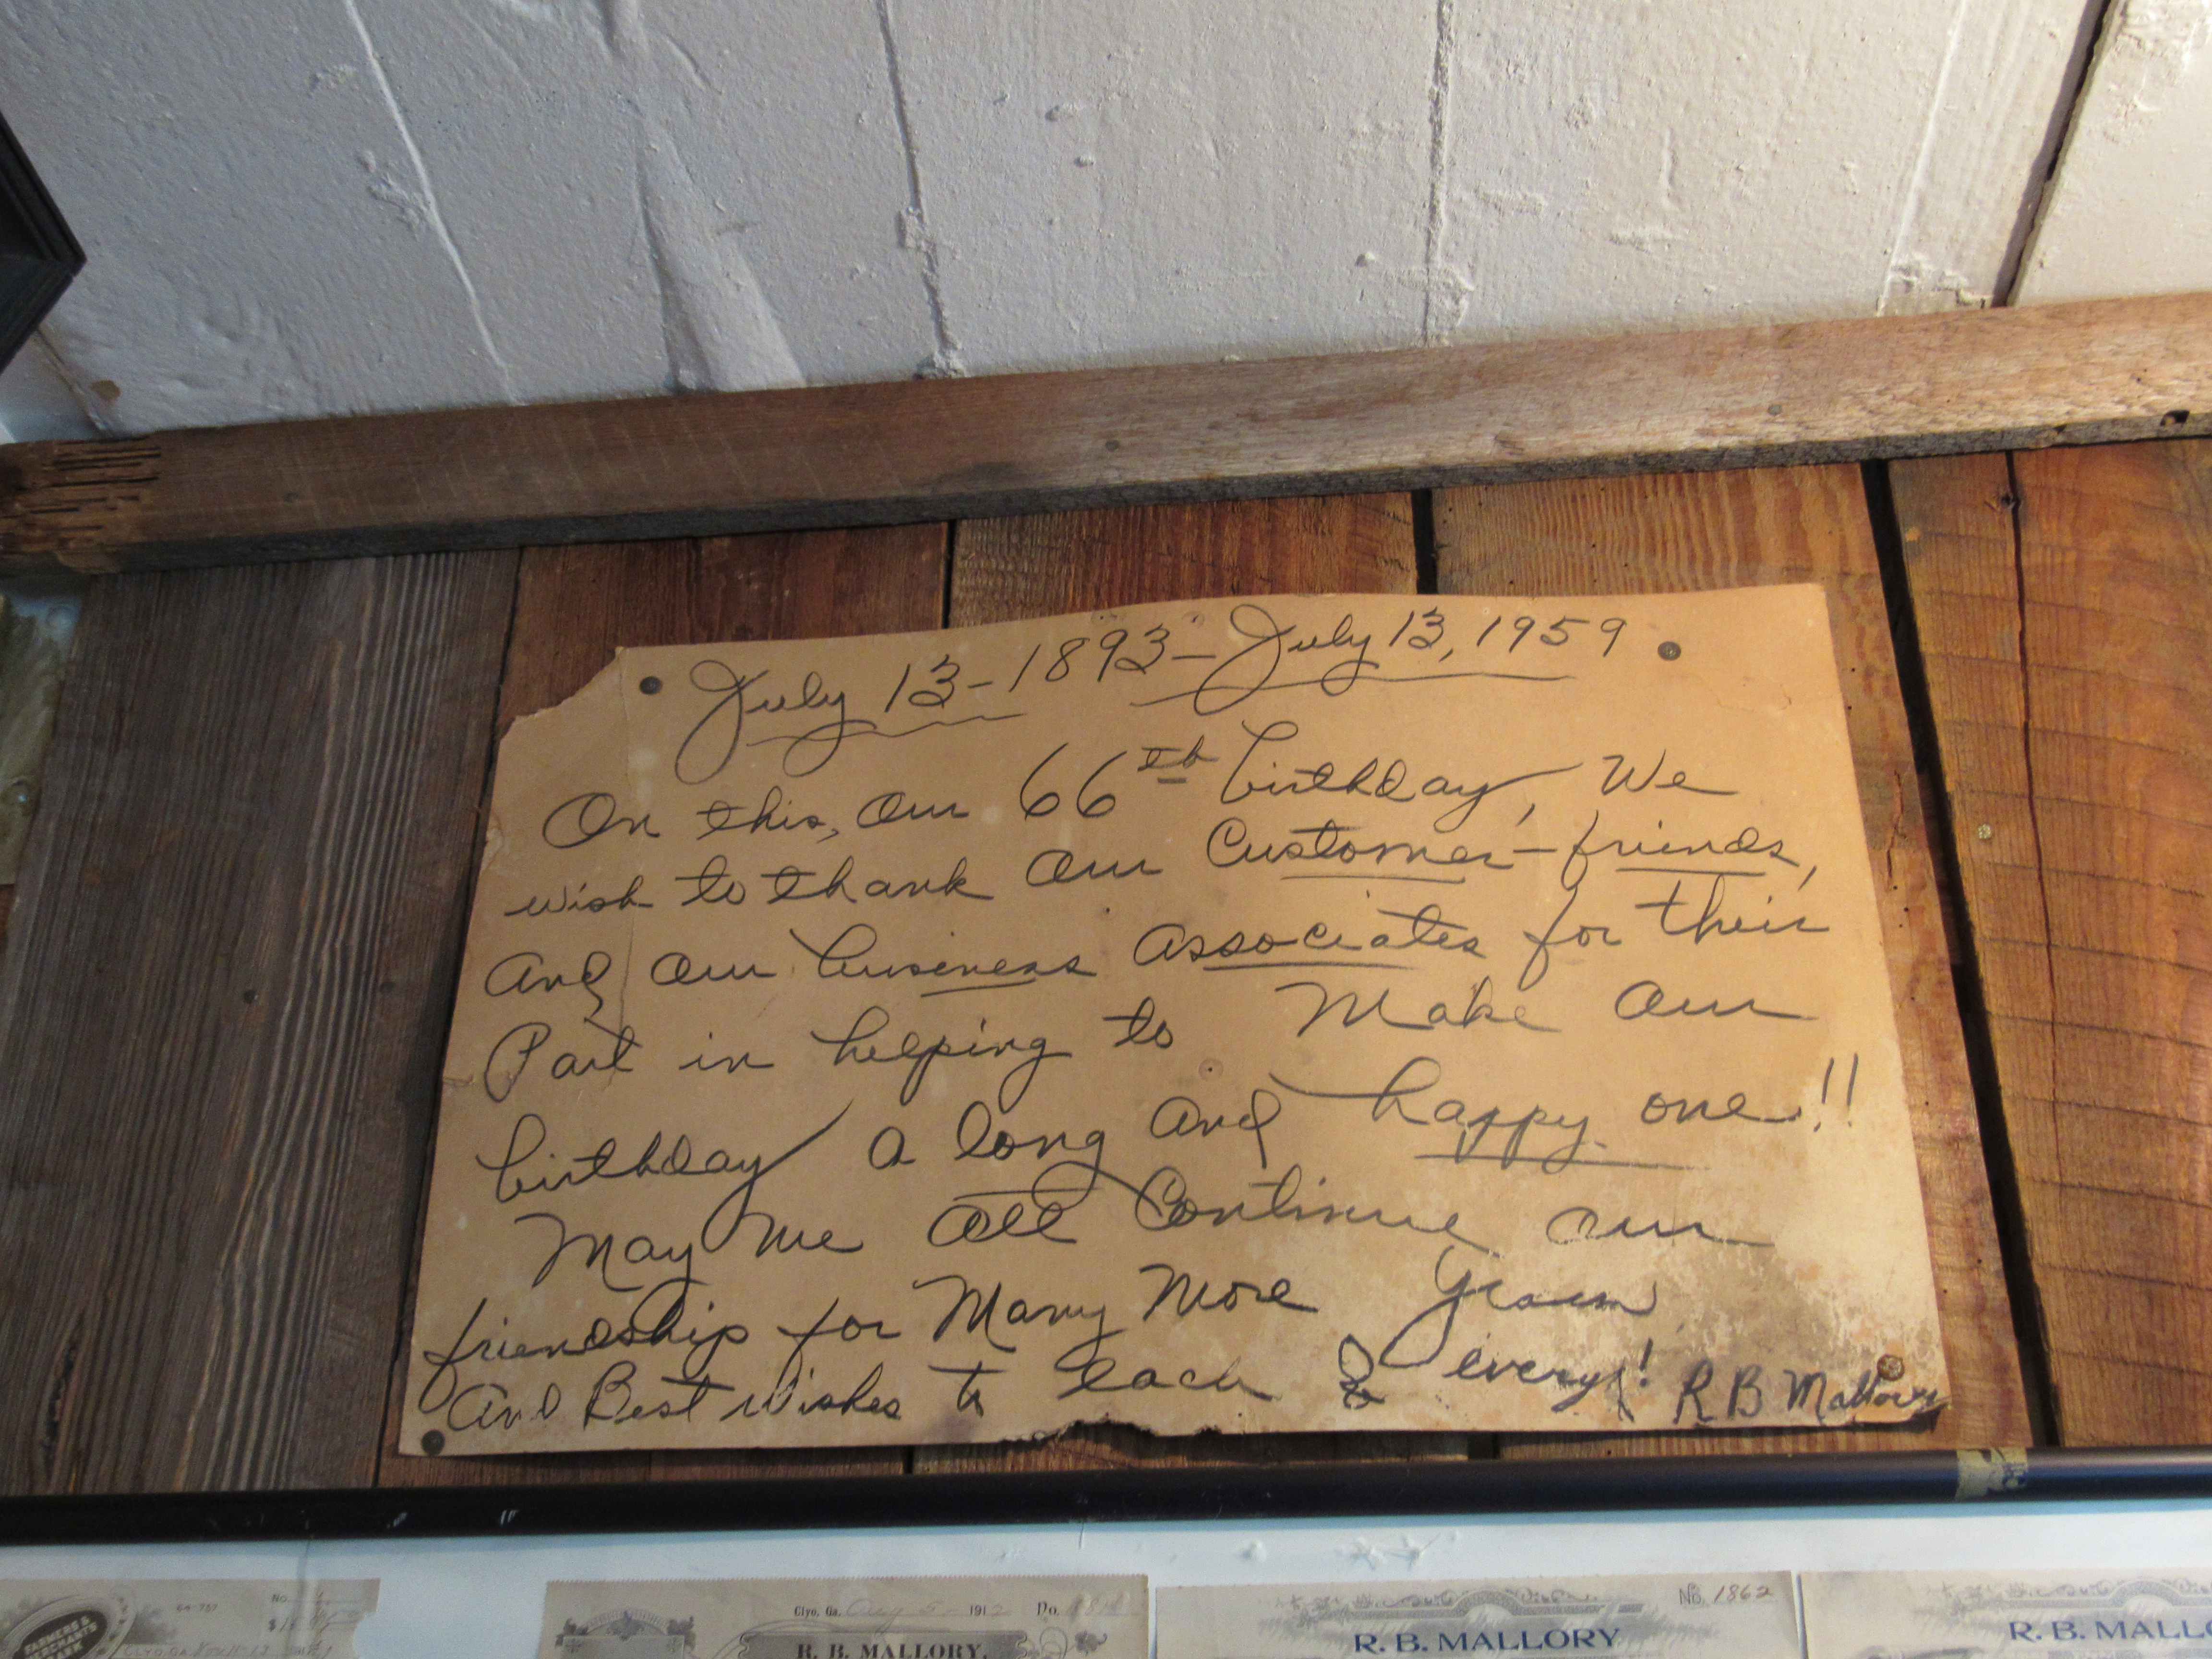 July 13-1893-July 13, 1959
On this, our 66th birthday, We
wish to thank our Customer-friends,
And our business associates for their
Part in helping to Make our
birthday a long and happy one!!
May we all Continue our
friendship for Many More years
And Best Wishes to each & every! R B Mallory
64-757 No.
$
FARMERS &
MERCHANTS
BANK
Clyo, Ga. Aug 5- 1912 No.
R. B. MALLORY,
No. 1862
R. B. MALLORY
R. B. MALLO